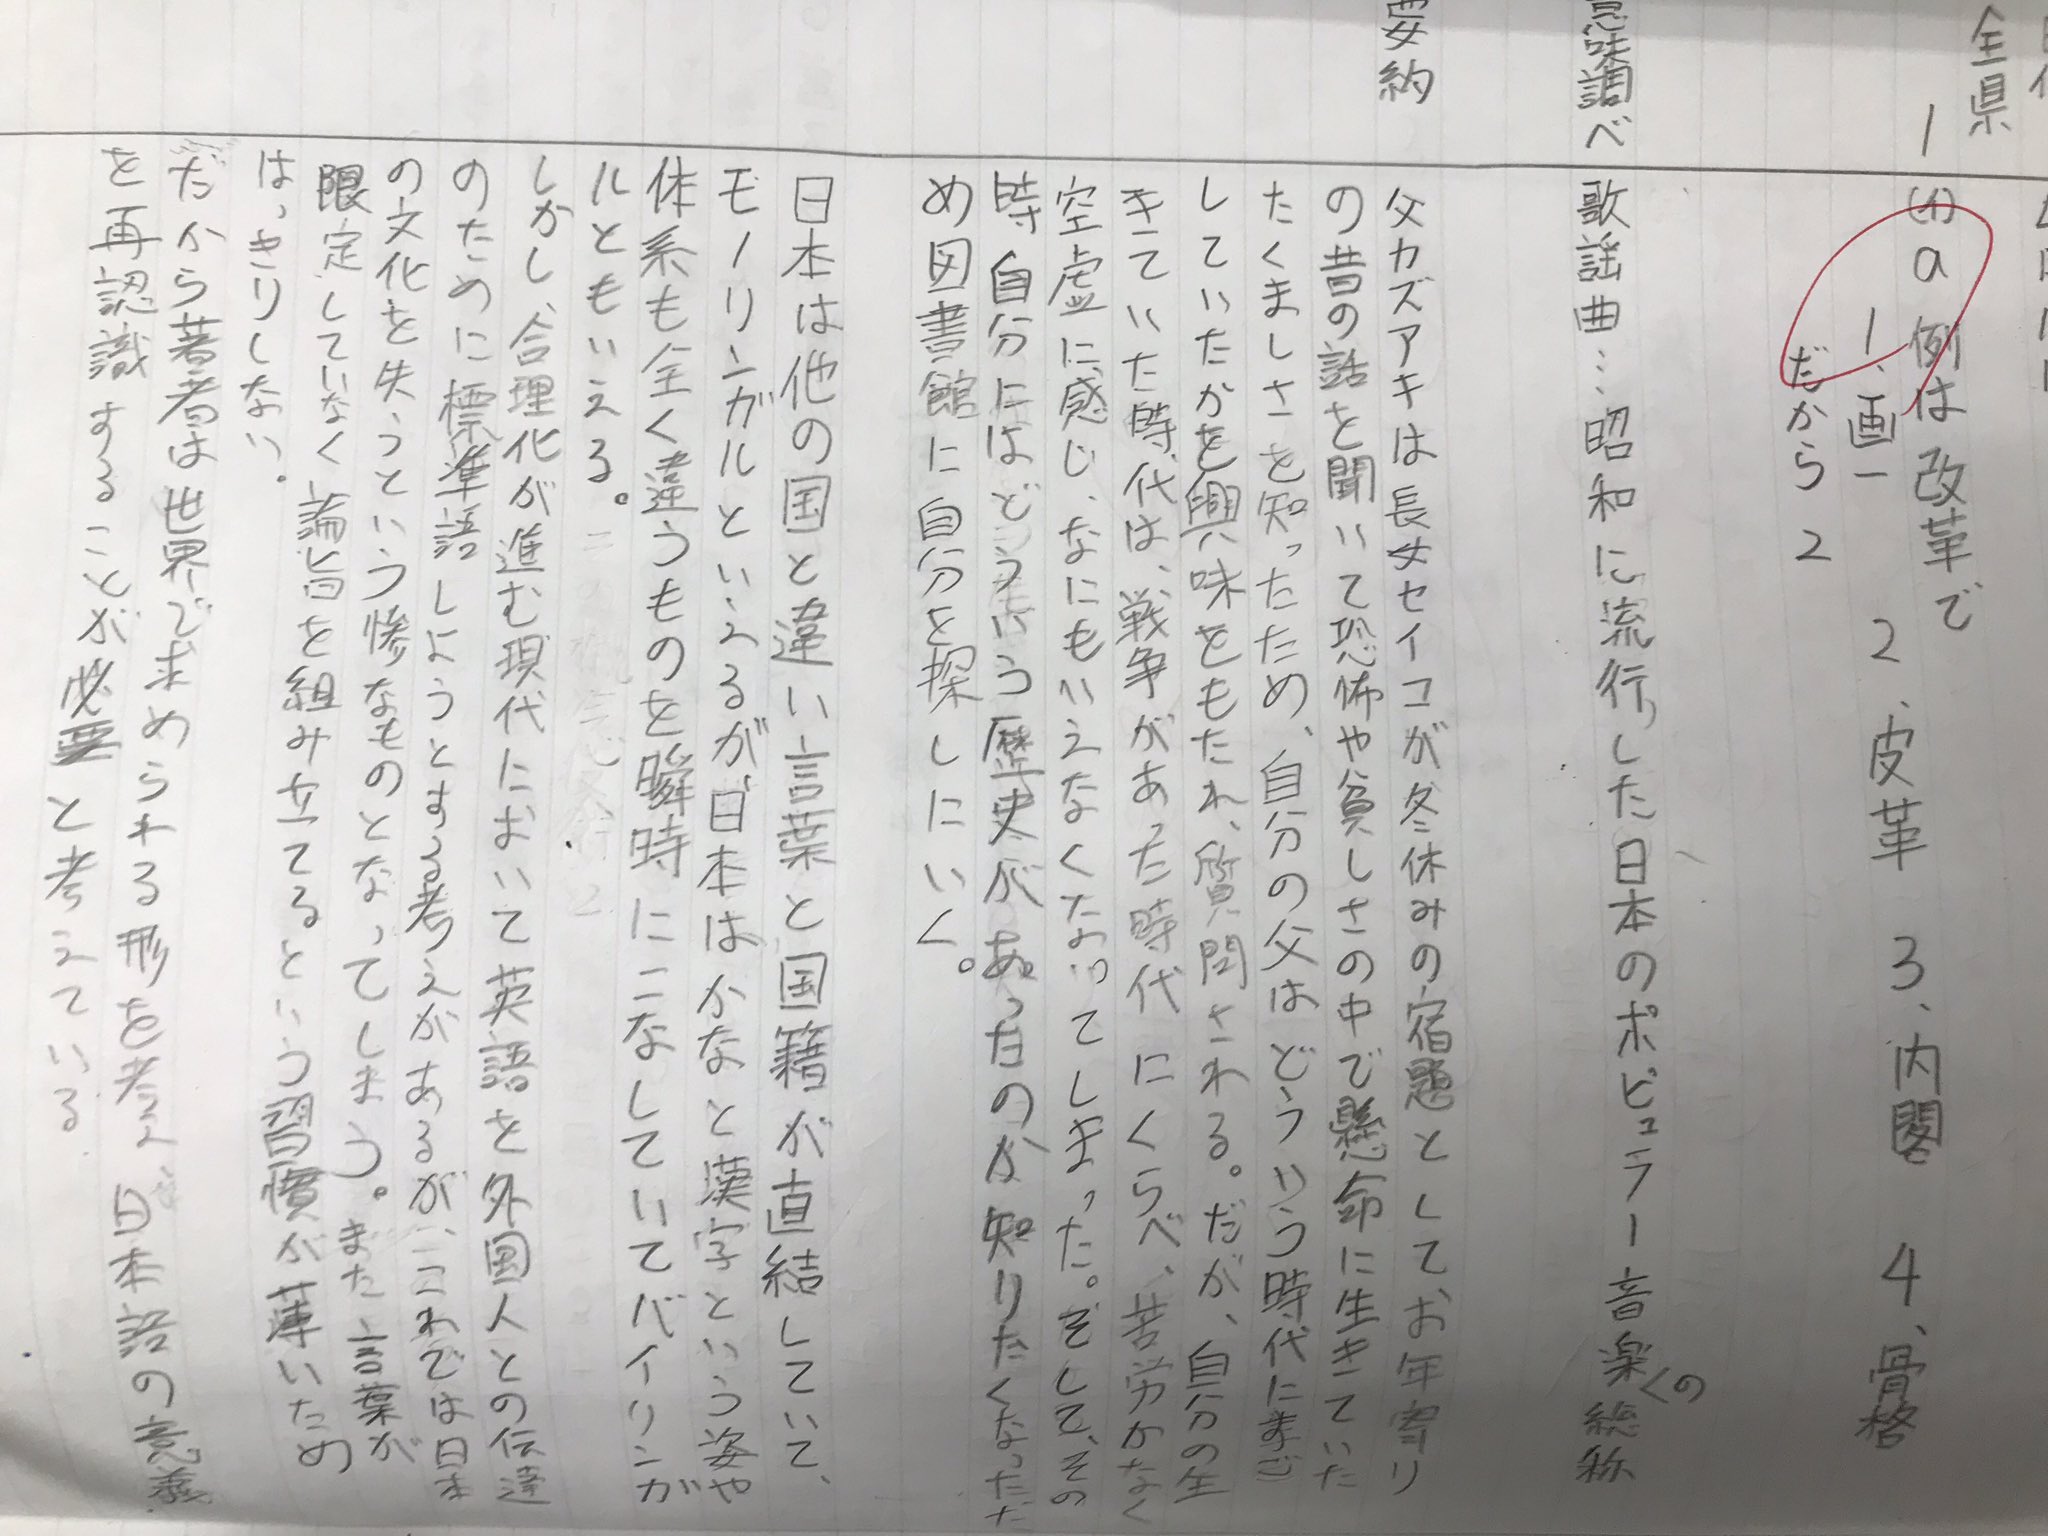 全県
1
(イ) a 例は改革で
1、画一 2、皮革 3、内閣 4、骨格
だから 2
意味調べ
歌謡曲…昭和に流行した日本のポピュラー音楽の総称
く
要約
父カズアキは長女セイコが冬休みの宿題としてお年寄り
の昔の話を聞いて恐怖や貧しさの中で懸命に生きていた
たくましさを知ったため、自分の父はどういう時代にまご
していたかを興味をもたれ、質問される。だが、自分の生
きていた時代は、戦争があった時代にくらべ、苦労がなく
空虚に感じ、なにもいえなくなってしまった。そして、その
時自分にはどういう歴史があったのか知りたくなったた
め図書館に自分を探しにいく。
日本は他の国と違い言葉と国籍が直結していて、
モノリンガルといえるが、日本はかなと漢字という姿や
体系も全く違うものを瞬時にこなしていてバイリンガ
ルともいえる。
しかし、合理化が進む現代において英語を外国人との伝達
のために標準語しようとする考えがあるが、これでは日本
の文化を失うという惨なものとなってしまう。また言葉が
限定していなく論旨を組み立てるという習慣が薄いため
はっきりしない。
だから著者は世界で求められる形を考え 日本語の意義
を再認識することが必要と考えている